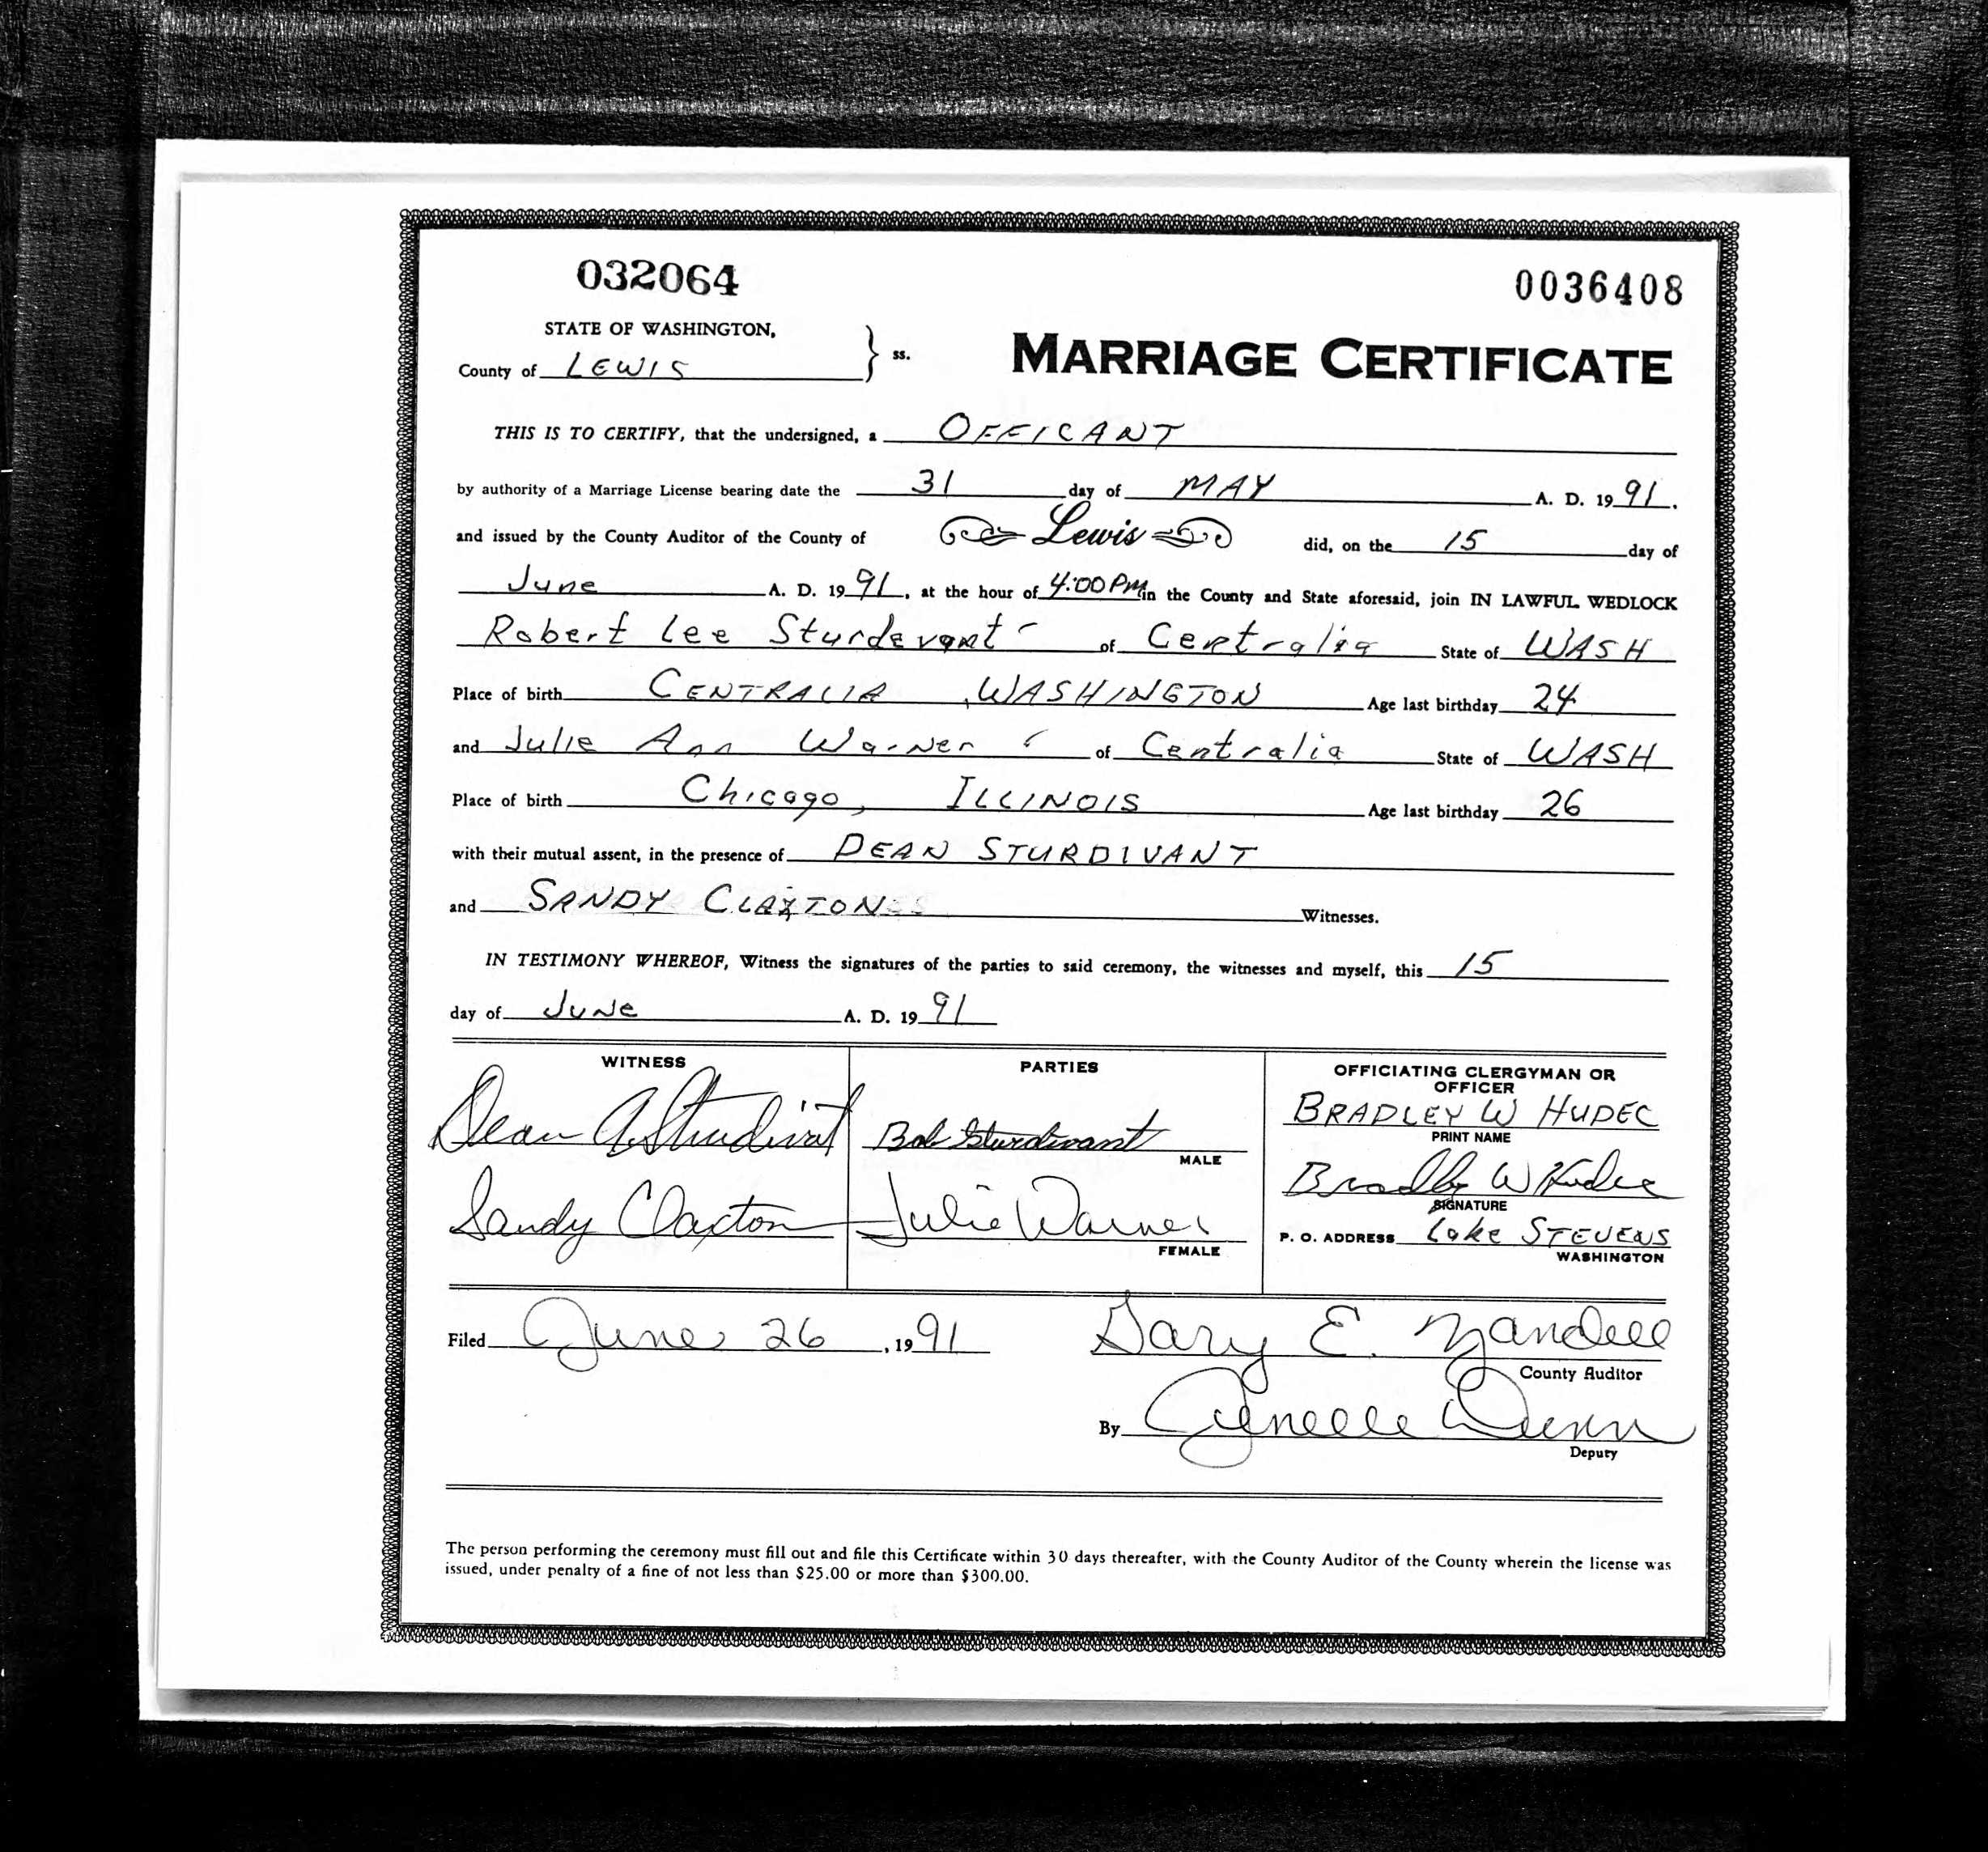 032064
0036408
STATE OF WASHINGTON,
County of LEWIS } ss.
MARRIAGE CERTIFICATE
THIS IS TO CERTIFY, that the undersigned, a OFFICANT
by authority of a Marriage License bearing date the 31 day of MAY A. D. 1991.
and issued by the County Auditor of the County of Lewis did, on the 15 day of
June A. D. 1991, at the hour of 4:00 Pm in the County and State aforesaid, join IN LAWFUL WEDLOCK
Robert Lee Sturdevant of Centralia State of WASH
Place of birth CENTRALIA, WASHINGTON Age last birthday 24
and Julie Ann Warner of Centralia State of WASH
Place of birth Chicago, ILLINOIS Age last birthday 26
with their mutual assent, in the presence of DEAN STURDIVANT
and SANDY CLAXTON Witnesses.
IN TESTIMONY WHEREOF, Witness the signatures of the parties to said ceremony, the witnesses and myself, this 15
day of JUNE A. D. 1991
WITNESS
PARTIES
OFFICIATING CLERGYMAN OR
OFFICER
Dean A Sturdivant
Bob Sturdivant
MALE
BRADLEY W HUDEC
PRINT NAME
Bradley W Hudec
SIGNATURE
Sandy Claxton
Julie Warner
FEMALE
P. O. ADDRESS Lake STEVENS
WASHINGTON
Filed June 26, 1991
Gary E. Zandell
County Auditor
By Dunn
Deputy
The person performing the ceremony must fill out and file this Certificate within 30 days thereafter, with the County Auditor of the County wherein the license was
issued, under penalty of a fine of not less than $25.00 or more than $300.00.